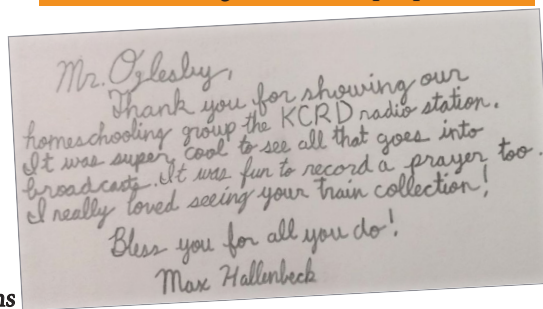 Mr. Oglesby,
Thank you for showing our
homeschooling group the KCRD radio station.
It was super cool to see all that goes into
broadcasts. It was fun to record a prayer too.
I really loved seeing your train collection!
Bless you for all you do!
Max Hallenbeck